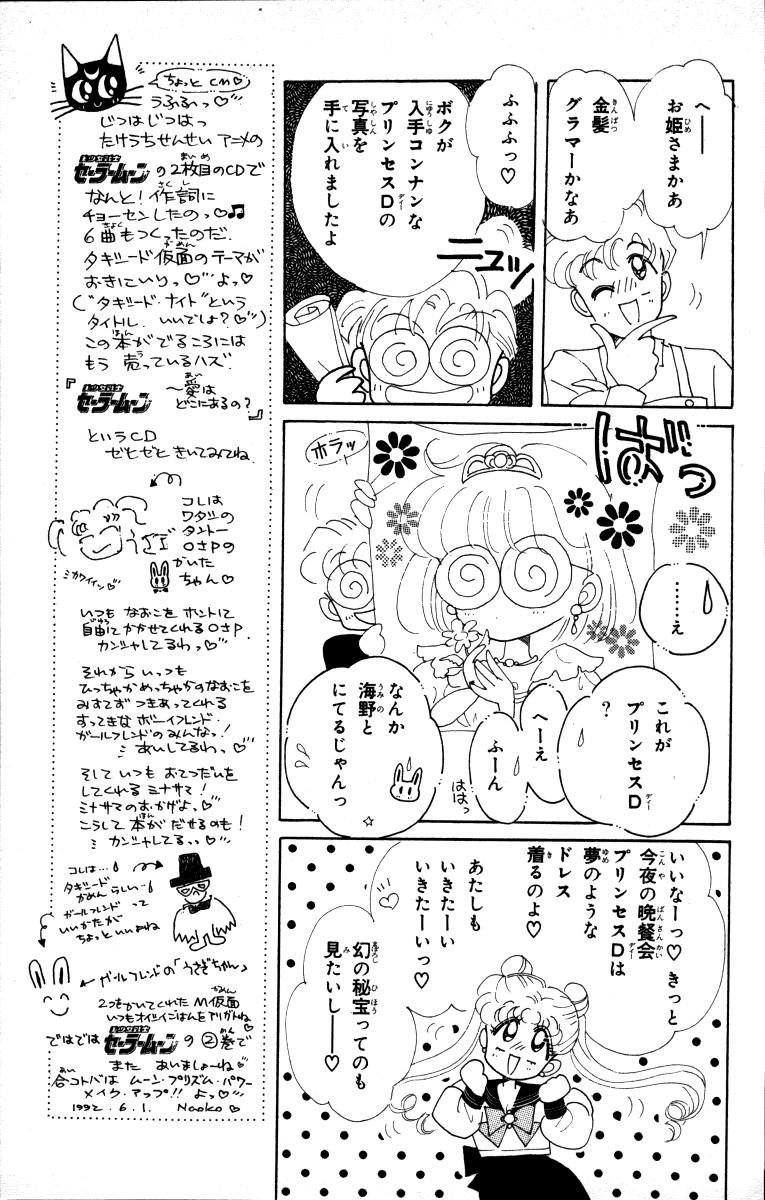 へ――
お姫さまかあ
金髪
グラマーかなあ
ふふふっ♡
ボクが
入手コンナンな
プリンセスDの
写真を
手に入れましたよ
ニュッ
ホラッ
ばっ
……え
これが
プリンセスD
?
へーえ
ふーん
ははっ
なんか
海野と
にてるじゃんっ
☆
いいなーっ♡きっと
今夜の晩餐会
プリンセスDは
夢のような
ドレス
着るのよ♡
あたしも
いきたーい
いきたーいっ♡
幻の秘宝ってのも
見たいし――♡
ちょっとCM♡
うふふるへっ♡
じつはじつはっ
たけうちせんせい アニメの
美少女戦士
セーラームーンの2枚目のCDで
なんと!作詞に
チョーセンしたのっ♡♫
6曲もつくったのだ.
タキシード仮面のテーマが
おきにいりっ♡よっ♡
(“タキシード・ナイト”という
タイトル.いいでしょ?♡)
この本がでるころには
もう売っているハズ.
『美少女戦士
セーラームーン 〜愛は
どこにあるの?』
というCD
ぜひぜひ きいてみてね.
コレは
ワタシの
タントー
OさPの
かいた
ちゃん♡
いつも なおこを ホントに
自由にかかせてくれるOさP.
カンシャしてるわっ♡
それから いっつも
ひっちゃかめっちゃかのなおこを
みすてず つきあってくれる
すってきな ボーイフレンド・
ガールフレンドのみんなっ!
あいしてるわっ♡
そして いつも おてつだいを
してくれる ミナサマ!
ミナサマのおかげよ♡
こうして 本が だせるのも!
カンシャしてるっ♡
コレは…
タキシード
かめんらしい…
ガールフレンド って
いいかたが
ちょっといいよね
ガールフレンドの「うさぎちゃん」
2つをかいてくれた M仮面
いつもオイシイごはんをアリガトね♡
ではでは 美少女戦士
セーラームーン の ②巻で
また あいましょーね♡
合コトバは ムーン・プリズム・パワー
メイク・アップ!! よっ♡
1992.6.1. Naoko♡